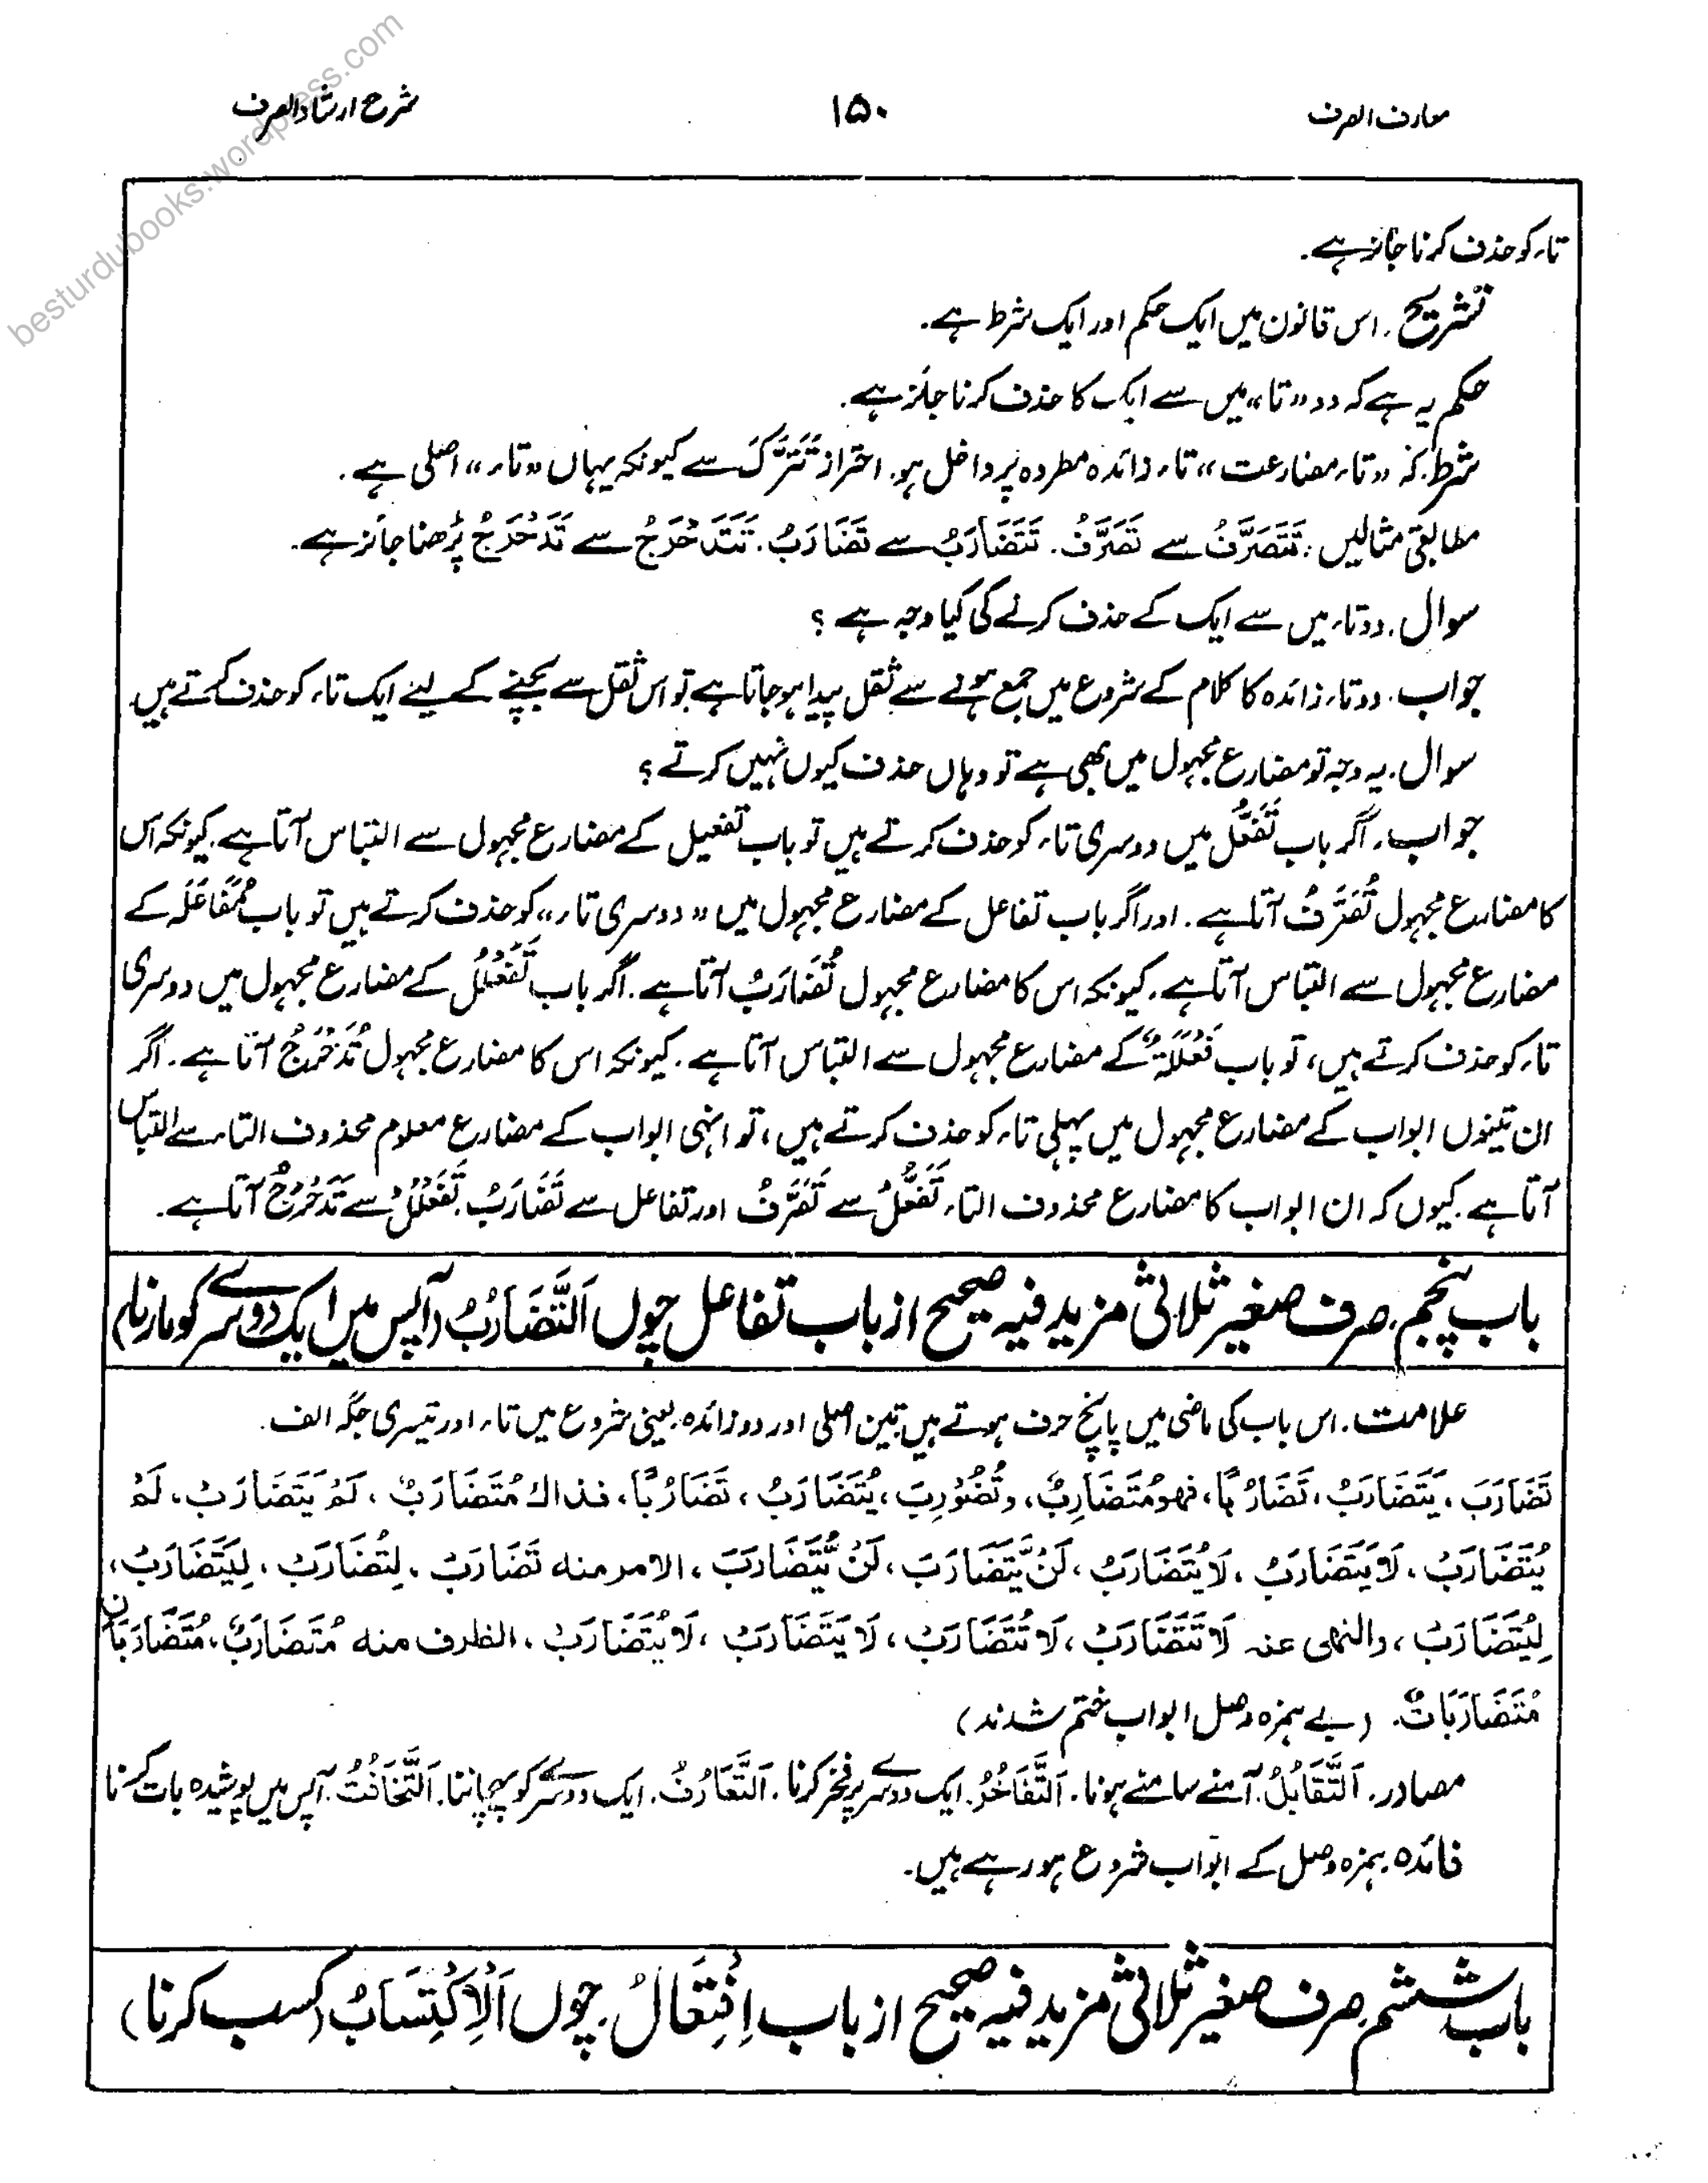 معارف الصرف
۱۵۰
شرح ارشاد الصرف
besturdubooks.wordpress.com
تاء کو حذف کرنا جائز ہے۔
تشریح ۔ اس قانون میں ایک حکم اور ایک شرط ہے۔
حکم یہ ہے کہ دو «تا» میں سے ایک کا حذف کرنا جائز ہے۔
شرط کہ «تاء مضارعت» تاء زائدہ مطردہ پر داخل ہو۔ احتراز تَتَّرَكُ سے کیونکہ یہاں «تاء» اصلی ہے۔
مطابقی مثالیں ۔ تَتَصَرَّفُ سے تَصَرَّفُ۔ تَتَضَارَبُ سے تَضَارَبُ۔ تَتَدَحْرَجُ سے تَدَحْرَجُ پڑھنا جائز ہے۔
سوال۔ دو تاء میں سے ایک کے حذف کرنے کی کیا وجہ ہے؟
جواب۔ دو تاء زائدہ کا کلام کے شروع میں جمع ہونے سے ثقل پیدا ہو جاتا ہے تو اس ثقل سے بچنے کے لیئے ایک تاء کو حذف کرتے ہیں۔
سوال۔ یہ وجہ تو مضارع مجہول میں بھی ہے تو وہاں حذف کیوں نہیں کرتے؟
جواب۔ اگر باب تَفَعُّل میں دوسری تاء کو حذف کرتے ہیں تو باب تفعیل کے مضارع مجہول سے التباس آتا ہے۔ کیونکہ اس
کا مضارع مجہول تُصَرَّفُ آتا ہے۔ اور اگر باب تفاعل کے مضارع مجہول میں «دوسری تاء» کو حذف کرتے ہیں تو باب مُفَاعَلَہ کے
مضارع مجہول سے التباس آتا ہے۔ کیونکہ اس کا مضارع مجہول تُضَارَبُ آتا ہے۔ اگر باب تَفَعْلُلُ کے مضارع مجہول میں دوسری
تاء کو حذف کرتے ہیں، تو باب فَعْلَلَةٌ کے مضارع مجہول سے التباس آتا ہے۔ کیونکہ اس کا مضارع مجہول تُدَحْرَجُ آتا ہے۔ اگر
ان تینوں ابواب کے مضارع مجہول میں پہلی تاء کو حذف کرتے ہیں، تو انہی ابواب کے مضارع معلوم محذوف التاء سے التباس
آتا ہے۔ کیوں کہ ان ابواب کا مضارع محذوف التاء تَفَعُّلُ سے تَصَرَّفُ اور تفاعل سے تَضَارَبُ۔ تَفَعْلُلُ سے تَدَحْرَجُ آتا ہے۔
باب پنجم۔ صرف صغیر ثلاثی مزید فیہ صحیح از باب تفاعل چوں اَلتَّضَارُبُ (آپس میں ایک دوسرے کو مارنا)
علامت۔ اس باب کی ماضی میں پانچ حرف ہوتے ہیں تین اصلی اور دو زائدہ یعنی شروع میں تاء اور تیسری جگہ الف۔
تَضَارَبَ، يَتَضَارَبُ، تَضَارُبًا، فهو مُتَضَارِبٌ، وتُضُوْرِبَ، يُتَضَارَبُ، تَضَارُبًا، فذاك مُتَضَارَبٌ، لَمْ يَتَضَارَبْ، لَمْ
يُتَضَارَبْ، لَا يَتَضَارَبُ، لَا يُتَضَارَبُ، لَنْ يَّتَضَارَبَ، لَنْ يُّتَضَارَبَ، الامر منه تَضَارَبْ، لِتُتَضَارَبْ، لِيَتَضَارَبْ،
لِيُتَضَارَبْ، والنهى عنه لَا تَتَضَارَبْ، لَا تُتَضَارَبْ، لَا يَتَضَارَبْ، لَا يُتَضَارَبْ، الظرف منه مُتَضَارَبٌ، مُتَضَارَبَانِ
مُتَضَارَبَاتٌ۔ (بے ہمزہ وصل ابواب ختم شدند)
مصادر۔ اَلتَّقَابُلُ۔ آمنے سامنے ہونا۔ اَلتَّفَاخُرُ۔ ایک دوسرے پر فخر کرنا۔ اَلتَّعَارُفُ۔ ایک دوسرے کو پہچاننا۔ اَلتَّخَافُتُ۔ آپس میں پوشیدہ بات کرنا
فائدہ۔ ہمزہ وصل کے ابواب شروع ہو رہے ہیں۔
باب ششم۔ صرف صغیر ثلاثی مزید فیہ صحیح از باب اِفْتِعَالُ۔ چوں اَلْاِكْتِسَابُ (کسب کرنا)